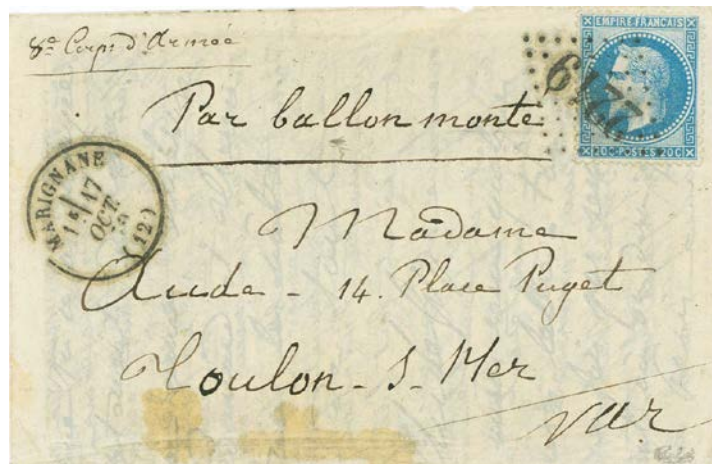 8e Corps d'Armée
EMPIRE FRANCAIS
2219
20C POSTES 20C
Par ballon monté
MARIGNANE
17
OCT.
(12)
Madame
Aude - 14. Place Puget
Toulon - s - Mer
Var